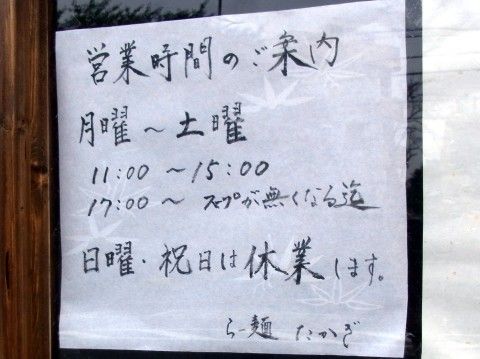 営業時間のご案内
月曜～土曜
11:00～15:00
17:00～スープが無くなる迄
日曜・祝日は休業します。
らー麺 たかぎ